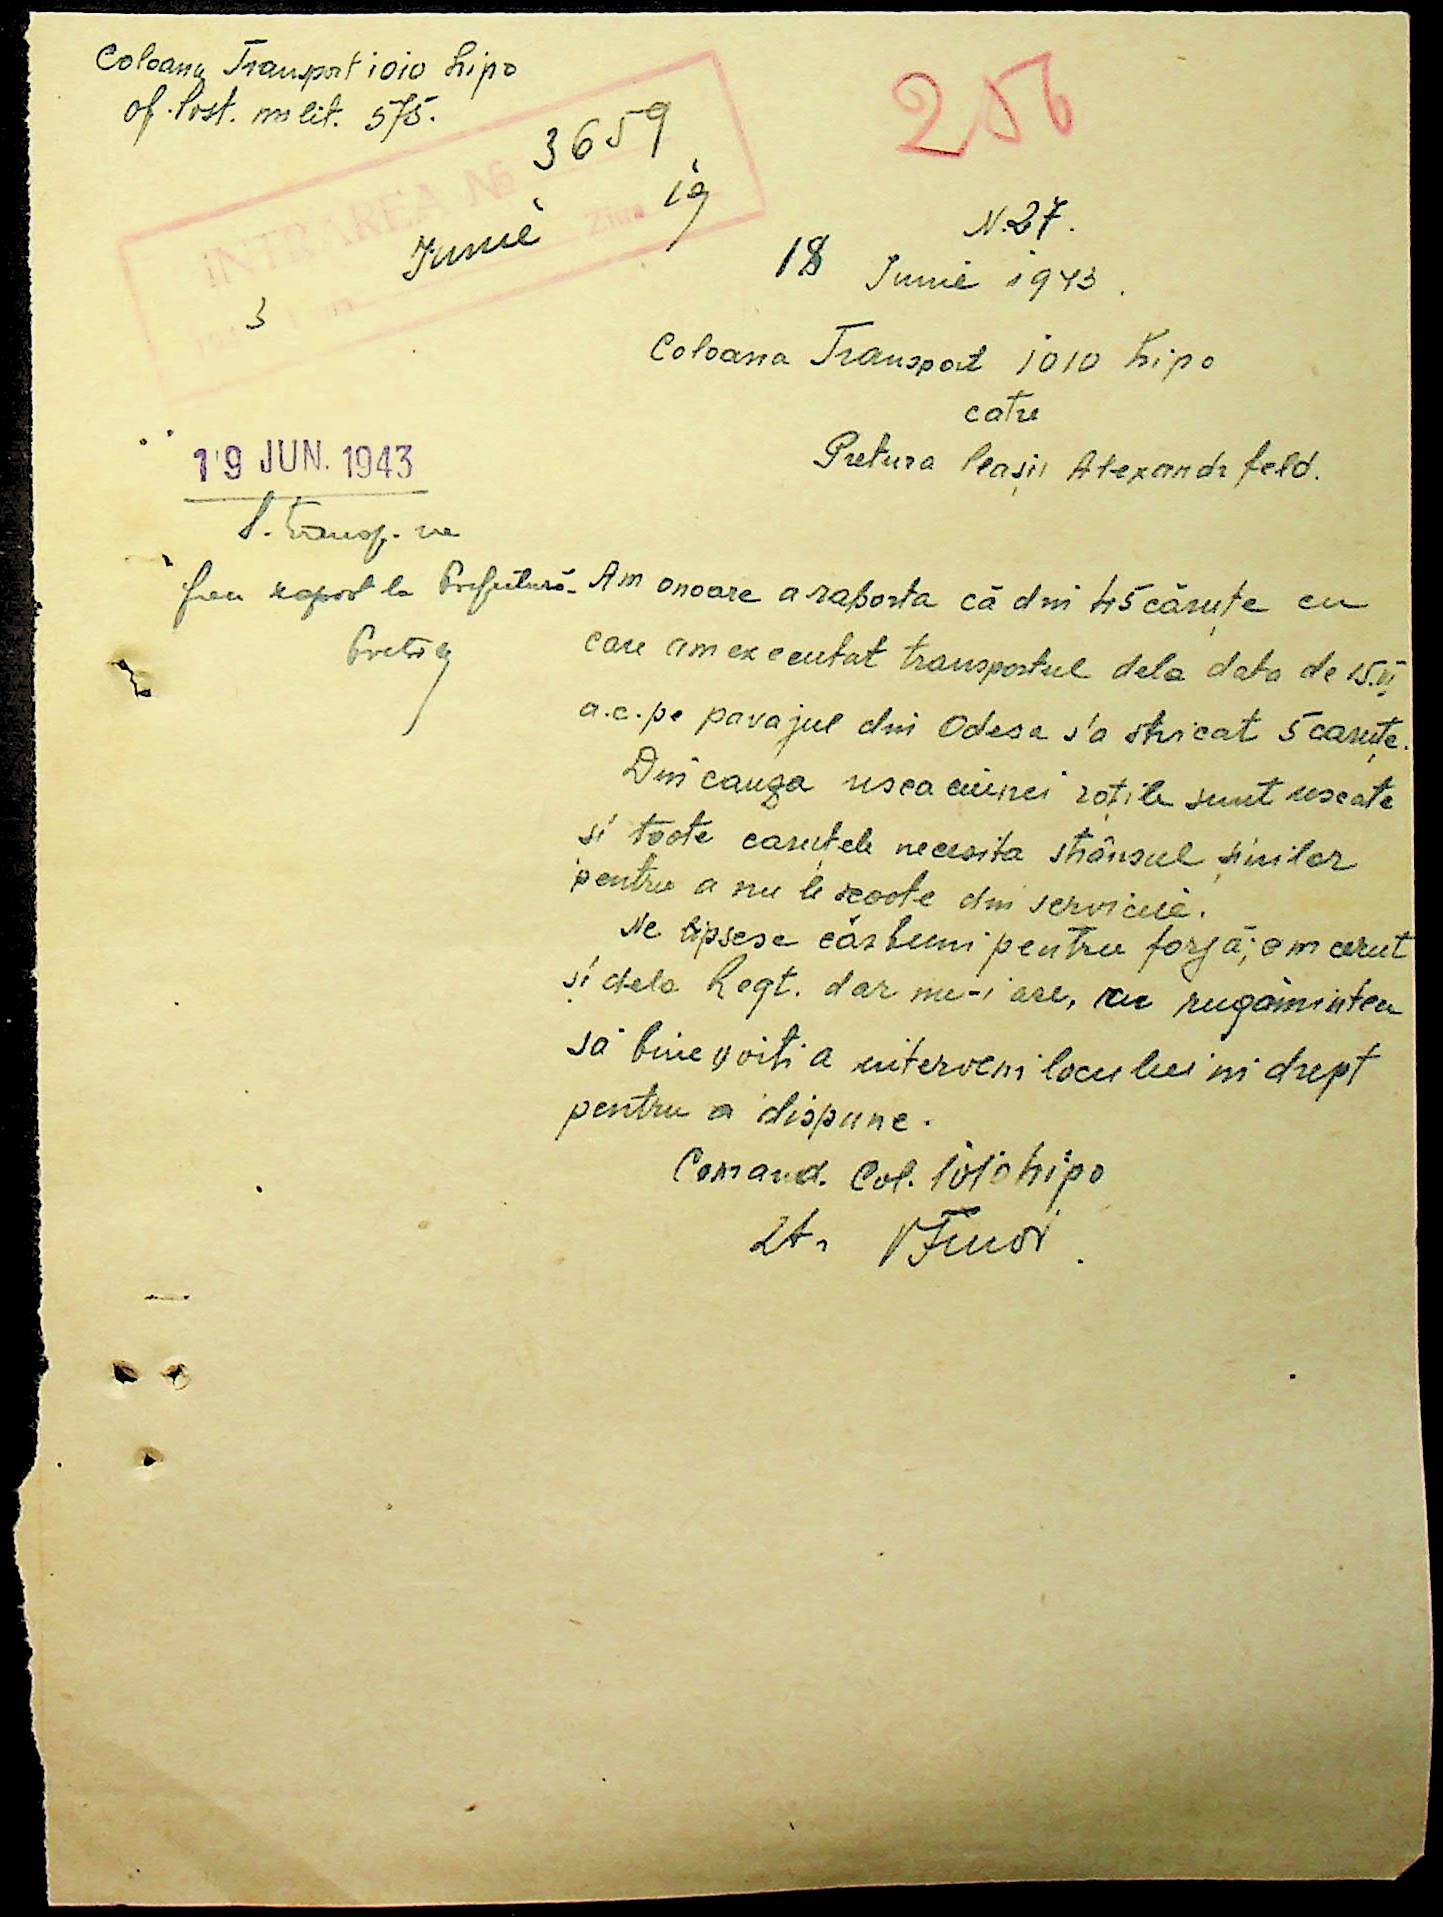 Coloana Transport 1010 hipo
of. Post. milit. 575.
256
INTRAREA No 3659
Iunie Ziua 19
3
N. 27.
18 Iunie 1943.
Coloana Transport 1010 hipo
catre
Pretura Plasii Alexandrfeld.
19 JUN. 1943
S. transp. va
face raport la Prefectură
Pretor
Am onoare a raporta că din 45 căruțe cu
care am executat transportul dela data de 15.VI
a.c. pe pavajul din Odesa s'a stricat 5 caruțe.
Din cauza uscaciunei roțile sunt uscate
si toate caruțele necesita strânsul șinilor
pentru a nu le scoate din serviciu.
Ne lipsesc cărbuni pentru forjă; am cerut
și dela Regt. dar nu-i are, cu rugămintea
să binevoiti a interveni locului in drept
pentru a dispune.
Comand. Col. 1010 hipo